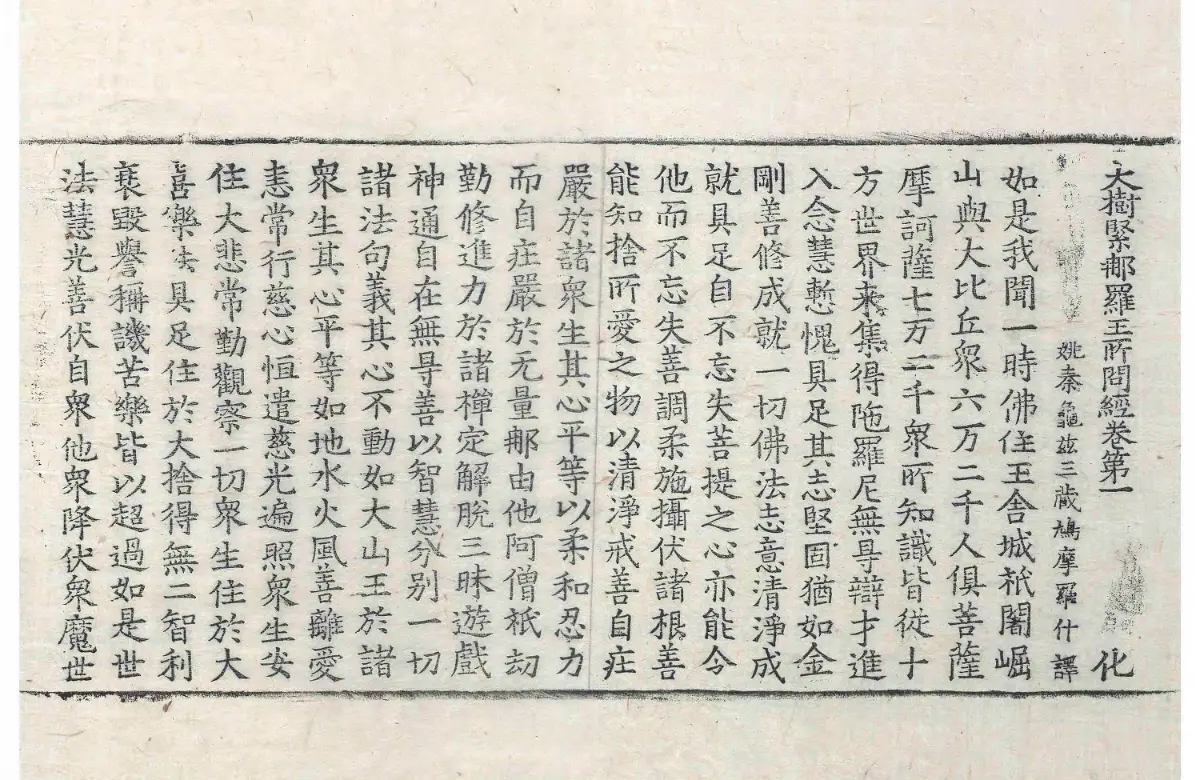 大樹緊那羅王所問經卷第一 化
姚秦龜茲三藏鳩摩羅什 譯
如是我聞一時佛住王舍城祇闍崛
山與大比丘眾六万二千人俱菩薩
摩訶薩七万二千眾所知識皆從十
方世界来集得陁羅尼無㝵辯才進
入念慧慙愧具足其志堅固猶如金
剛善修成就一切佛法志意清淨成
就具足自不忘失菩提之心亦能令
他而不忘失善調柔施攝伏諸根善
能知捨所愛之物以清淨戒善自庄
嚴於諸眾生其心平等以柔和忍力
而自庄嚴於无量那由他阿僧祇劫
勤修進力於諸禪定解脫三昧遊戲
神通自在無㝵善以智慧分别一切
諸法句義其心不動如大山王於諸
眾生其心平等如地水火風善離愛
恚常行慈心恒遣慈光遍照眾生安
住大悲常勤觀察一切眾生住於大
喜樂法具足住於大捨得無二智利
衰毀譽稱譏苦樂皆以超過如是世
法慧光善伏自眾他眾降伏眾魔世